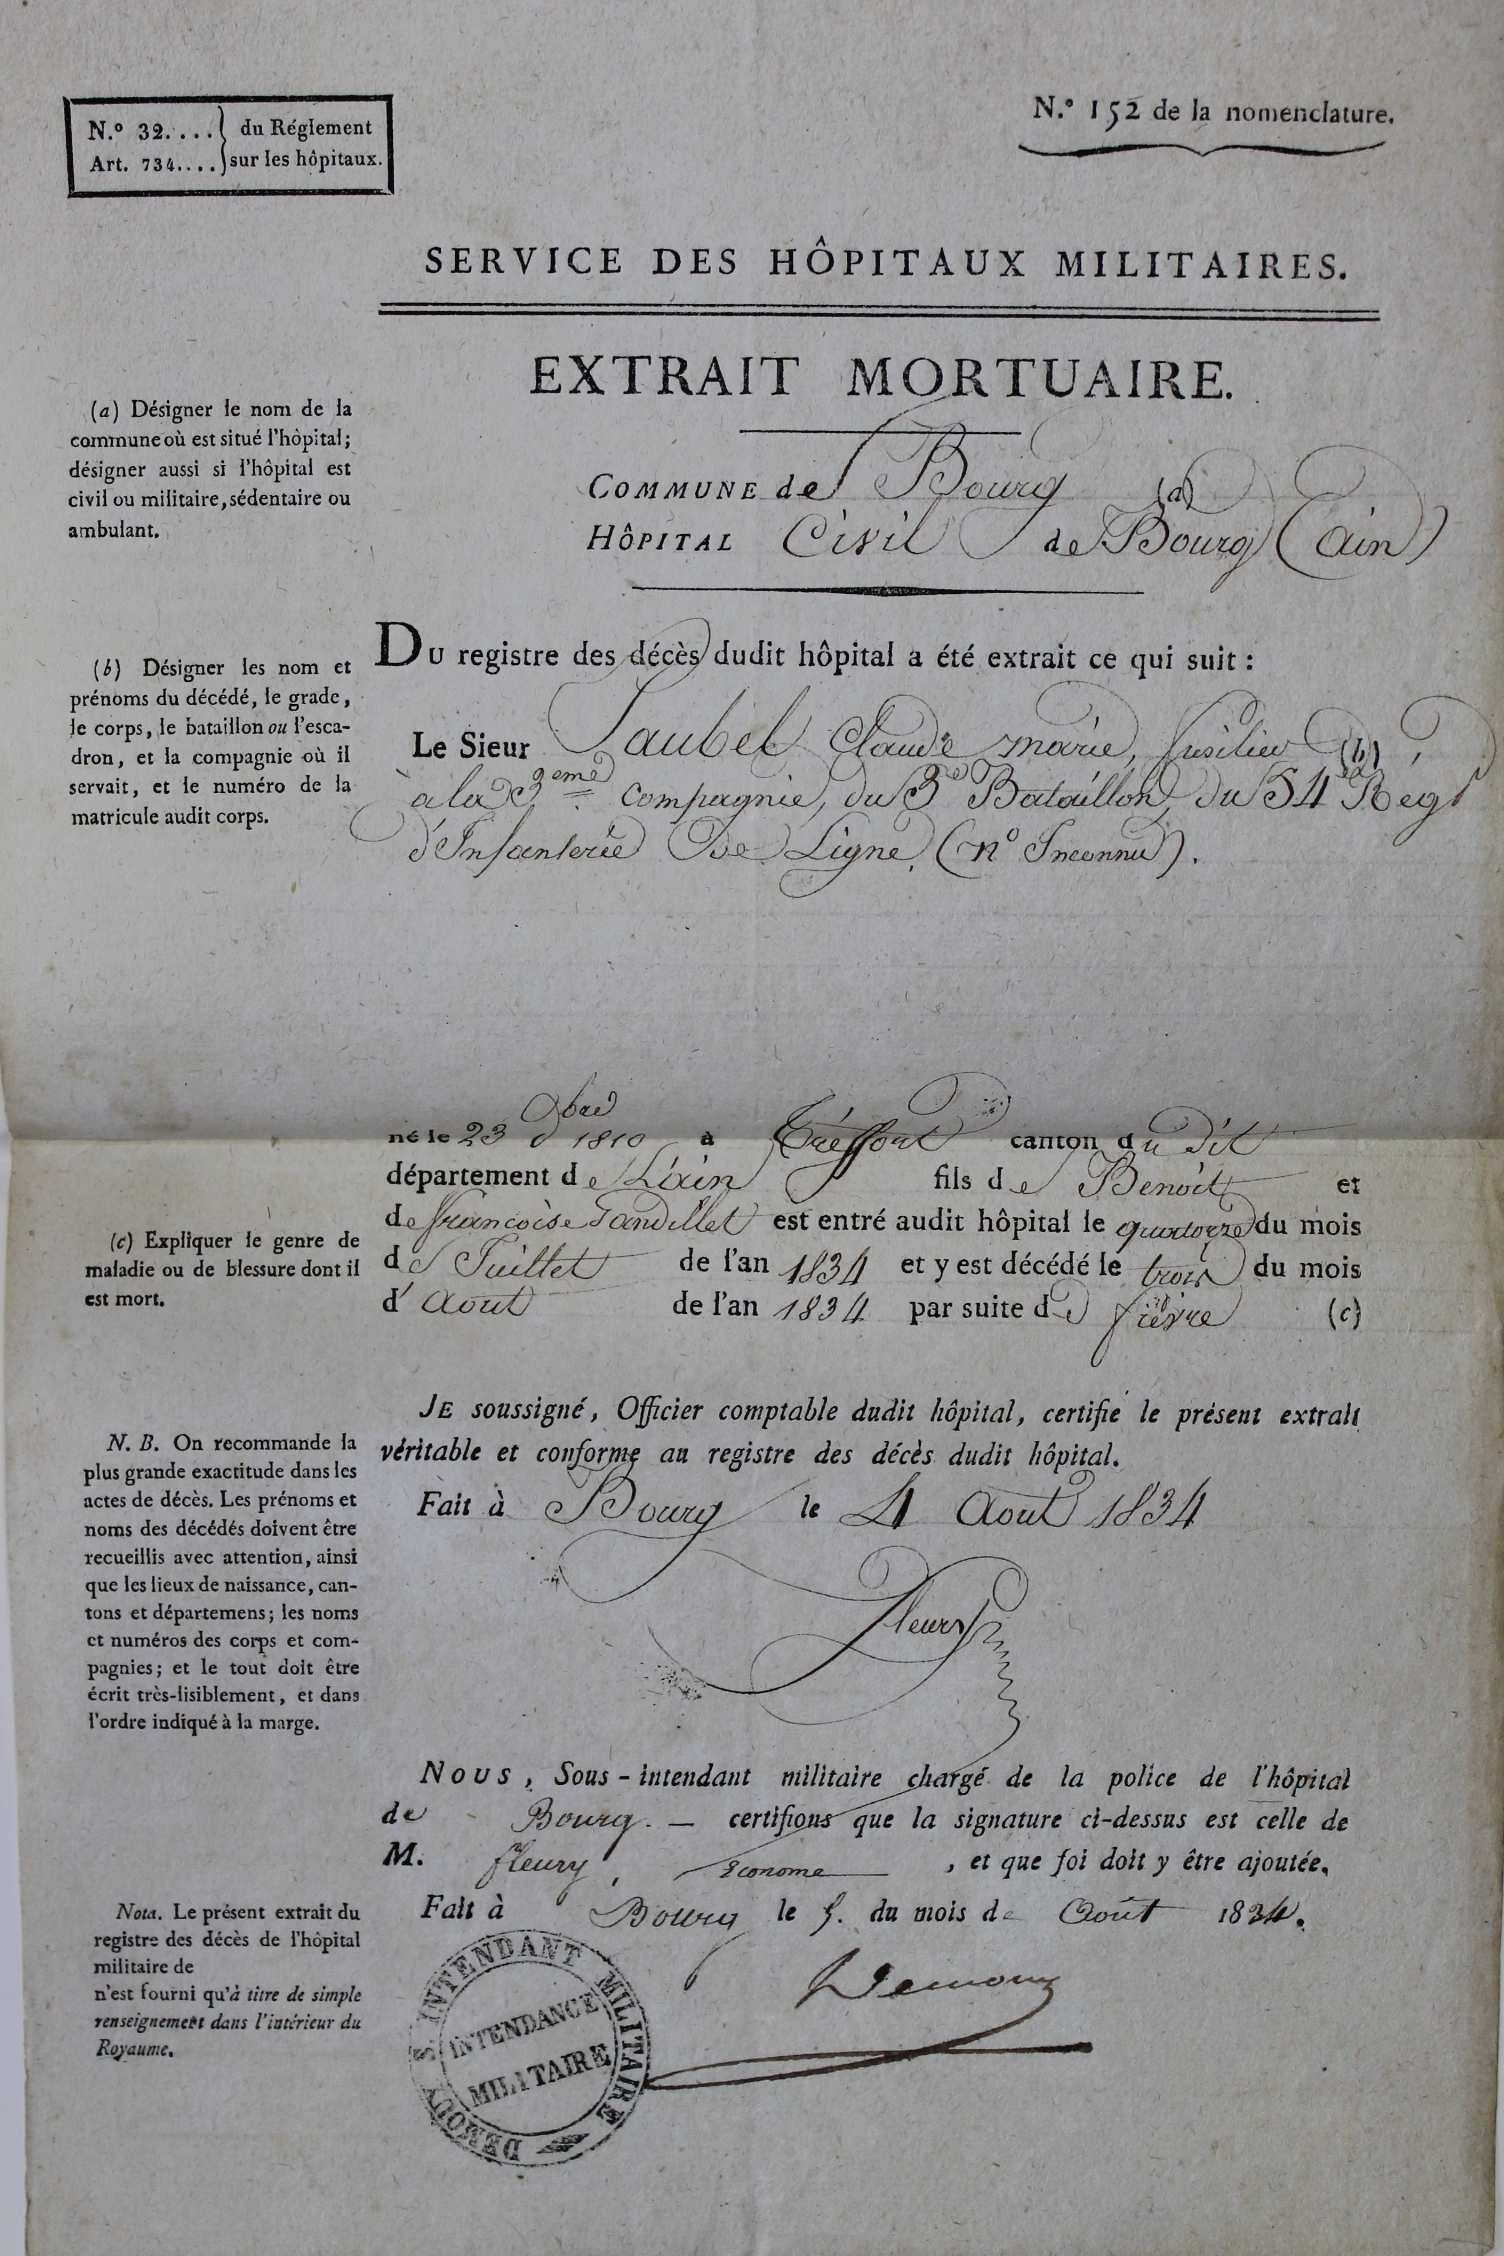 N.º 32.... du Réglement
Art. 734.... sur les hôpitaux.
N.º 152 de la nomenclature.
SERVICE DES HÔPITAUX MILITAIRES.
EXTRAIT MORTUAIRE.
(a) Désigner le nom de la
commune où est situé l'hôpital;
désigner aussi si l'hôpital est
civil ou militaire, sédentaire ou
ambulant.
COMMUNE de Bourg (a)
HÔPITAL Civil de Bourg (ain)
DU registre des décès dudit hôpital a été extrait ce qui suit :
(b) Désigner les nom et
prénoms du décédé, le grade,
le corps, le bataillon ou l'esca-
dron, et la compagnie où il
servait, et le numéro de la
matricule audit corps.
Le Sieur Jaubel Claude marie, fusilier (b)
à la 3eme compagnie, du 3e Bataillon du 54e Régt
d'Infanterie De Ligne. (nº Inconnu).
né le 23 obre 1810 à Tréffort canton du dit
département de L'ain fils de Benoit et
de francoise Jandellet est entré audit hôpital le quatorze du mois
de Juillet de l'an 1834 et y est décédé le trois du mois
d'Aout de l'an 1834 par suite de fièvre (c)
(c) Expliquer le genre de
maladie ou de blessure dont il
est mort.
JE soussigné, Officier comptable dudit hôpital, certifie le présent extrait
véritable et conforme au registre des décès dudit hôpital.
Fait à Bourg le 4 Aout 1834
Fleury
N. B. On recommande la
plus grande exactitude dans les
actes de décès. Les prénoms et
noms des décédés doivent être
recueillis avec attention, ainsi
que les lieux de naissance, can-
tons et départemens; les noms
et numéros des corps et com-
pagnies; et le tout doit être
écrit très-lisiblement, et dans
l'ordre indiqué à la marge.
NOUS, Sous-intendant militaire chargé de la police de l'hôpital
de Bourg. — certifions que la signature ci-dessus est celle de
M. fleury, Econome, et que foi doit y être ajoutée.
Fait à Bourg le 5. du mois de Août 1834.
Nota. Le présent extrait du
registre des décès de l'hôpital
militaire de
n'est fourni qu'à titre de simple
renseignement dans l'intérieur du
Royaume.
S. INTENDANT MILITAIRE
INTENDANCE
MILITAIRE